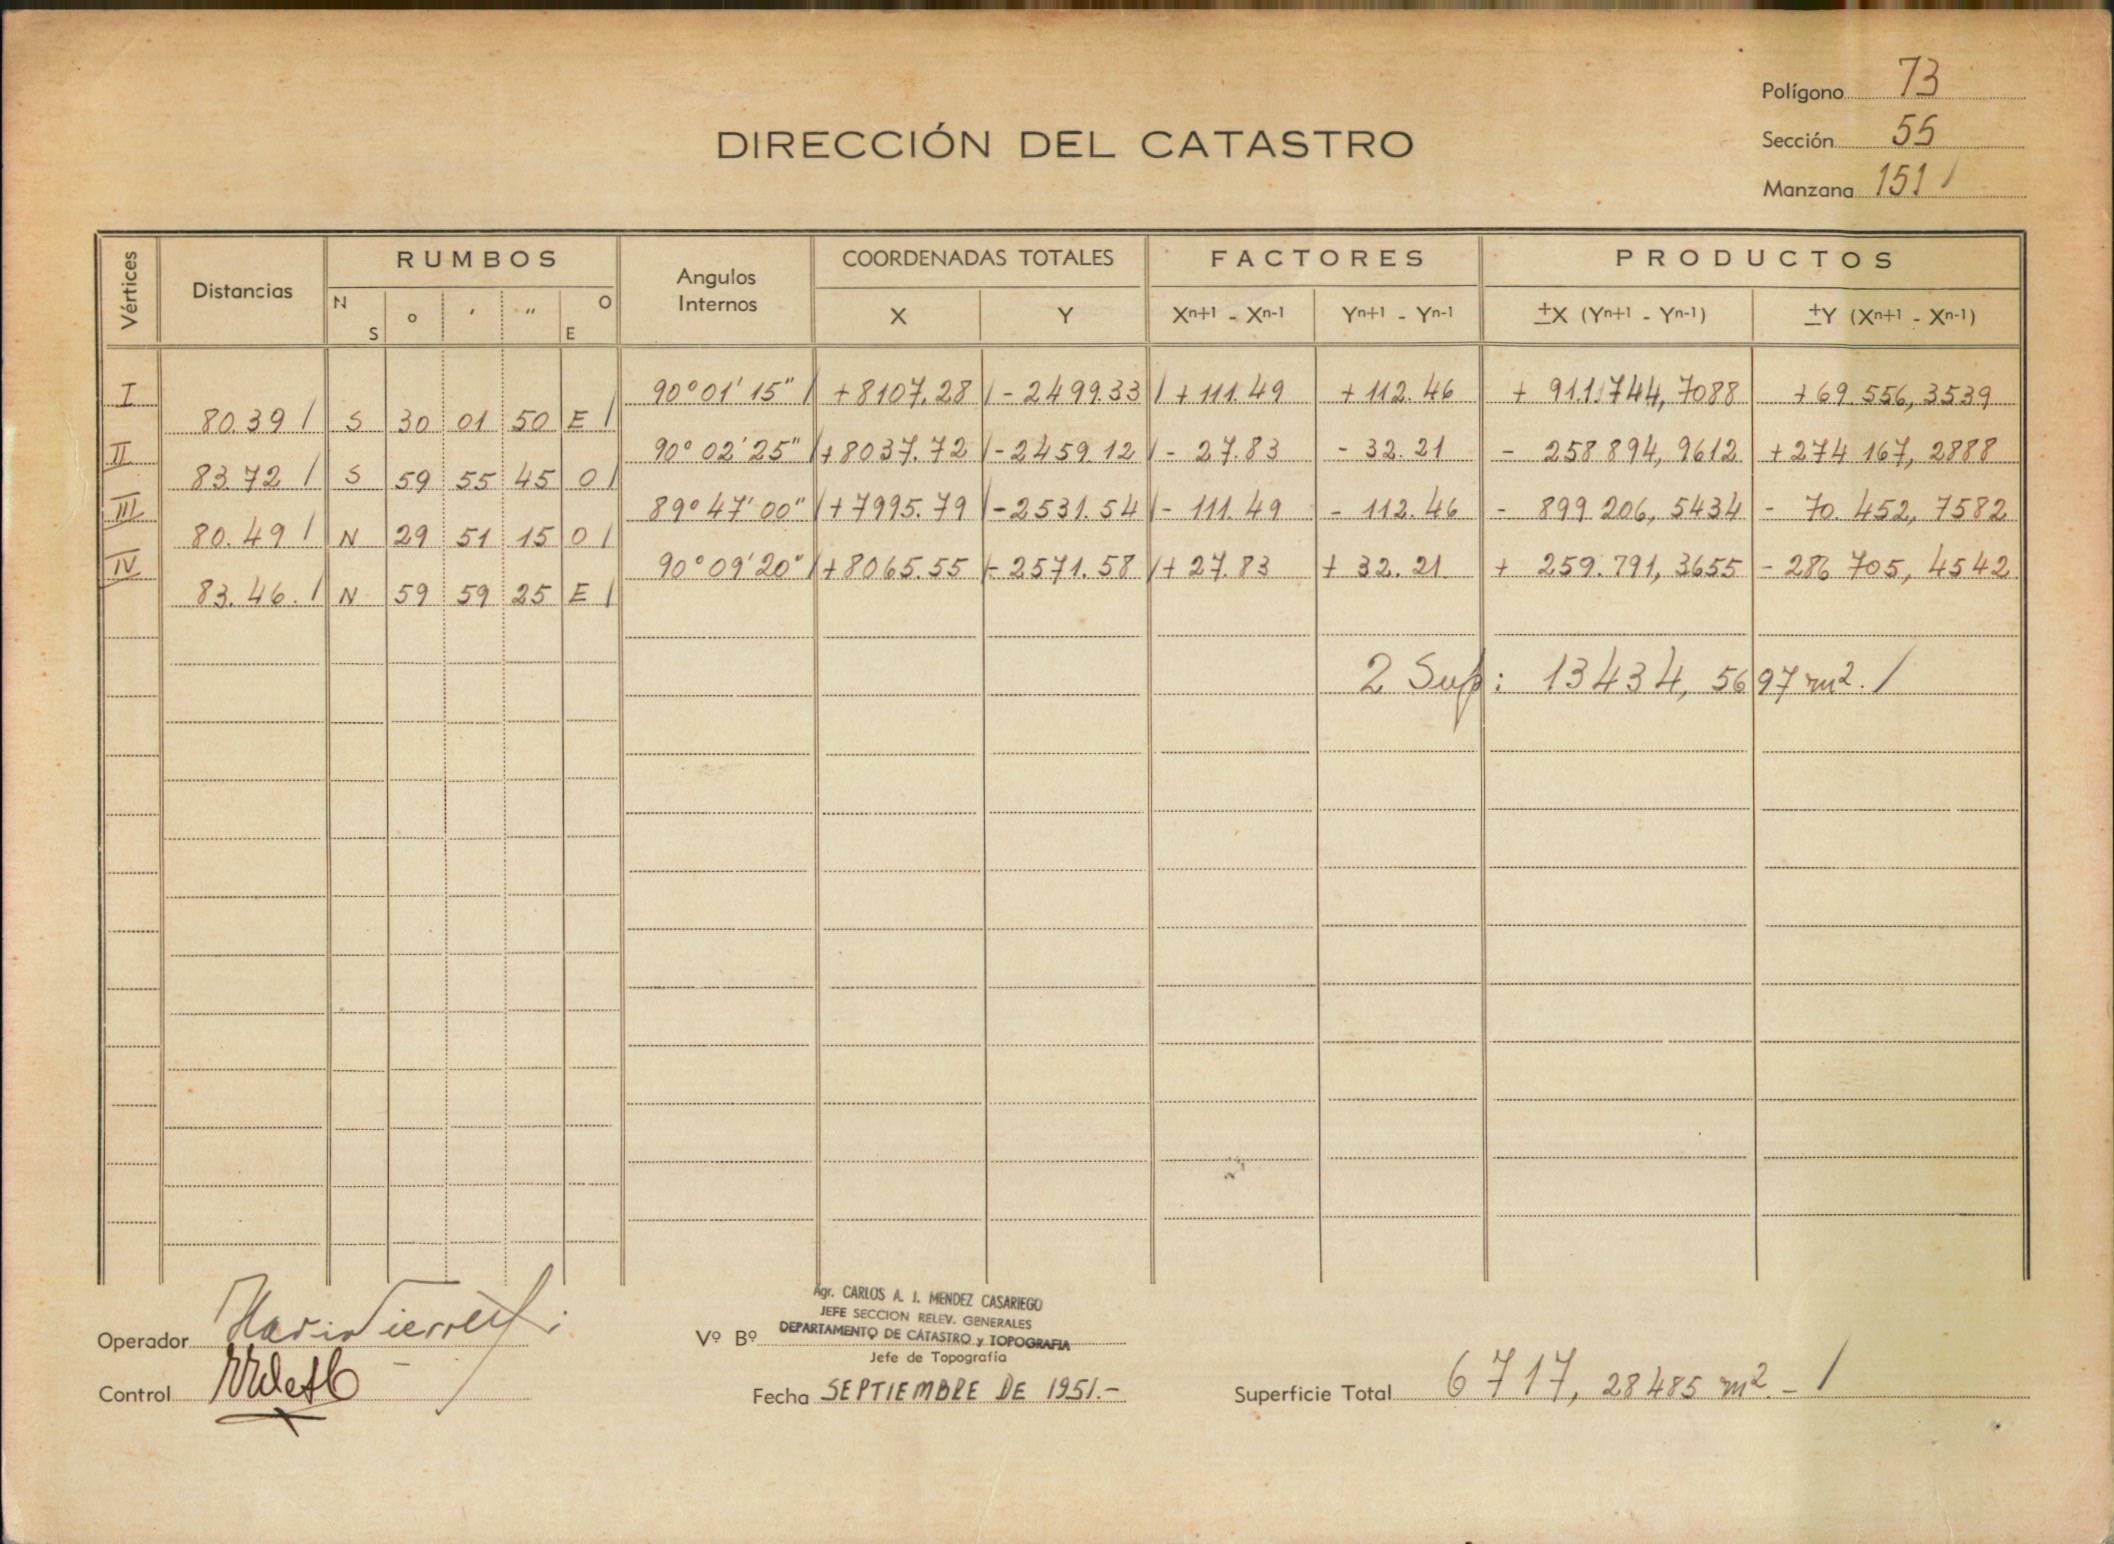 Polígono 73
DIRECCIÓN DEL CATASTRO
Sección 55
Manzana 151 /
Vértices Distancias RUMBOS Angulos Internos COORDENADAS TOTALES FACTORES PRODUCTOS
N S ° ' " O E X Y Xn+1 - Xn-1 Yn+1 - Yn-1 ±X (Yn+1 - Yn-1) ±Y (Xn+1 - Xn-1)
I 90° 01' 15" / +8107.28 / - 2499.33 / + 111.49 + 112.46 + 911.744,7088 +69.556,3539
80.39 / S 30 01 50 E /
II 90° 02' 25" / +8037.72 / -2459.12 / - 27.83 - 32.21 - 258 894,9612 +274 167,2888
83.72 / S 59 55 45 O /
III 89° 47' 00" / +7995.79 / -2531.54 / - 111.49 - 112.46 - 899 206,5434 - 70.452,7582
80.49 / N 29 51 15 O /
IV 90° 09' 20" / +8065.55 / - 2571.58 / + 27.83 + 32.21 + 259.791,3655 - 286 705,4542
83.46. / N 59 59 25 E /
2 Sup: 13434,5697 m2. /
Agr. CARLOS A. J. MENDEZ CASARIEGO
JEFE SECCION RELEV. GENERALES
DEPARTAMENTO DE CATASTRO y TOPOGRAFIA
Operador Vº Bº
Jefe de Topografía
Control Fecha SEPTIEMBRE DE 1951.- Superficie Total 6717,28485 m2.- /